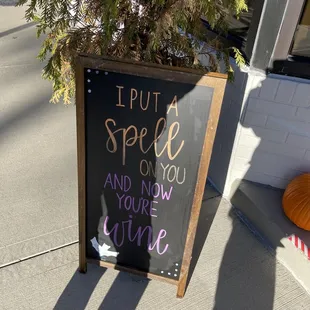 I PUT A
spell
ON YOU
AND NOW
YOURE
wine